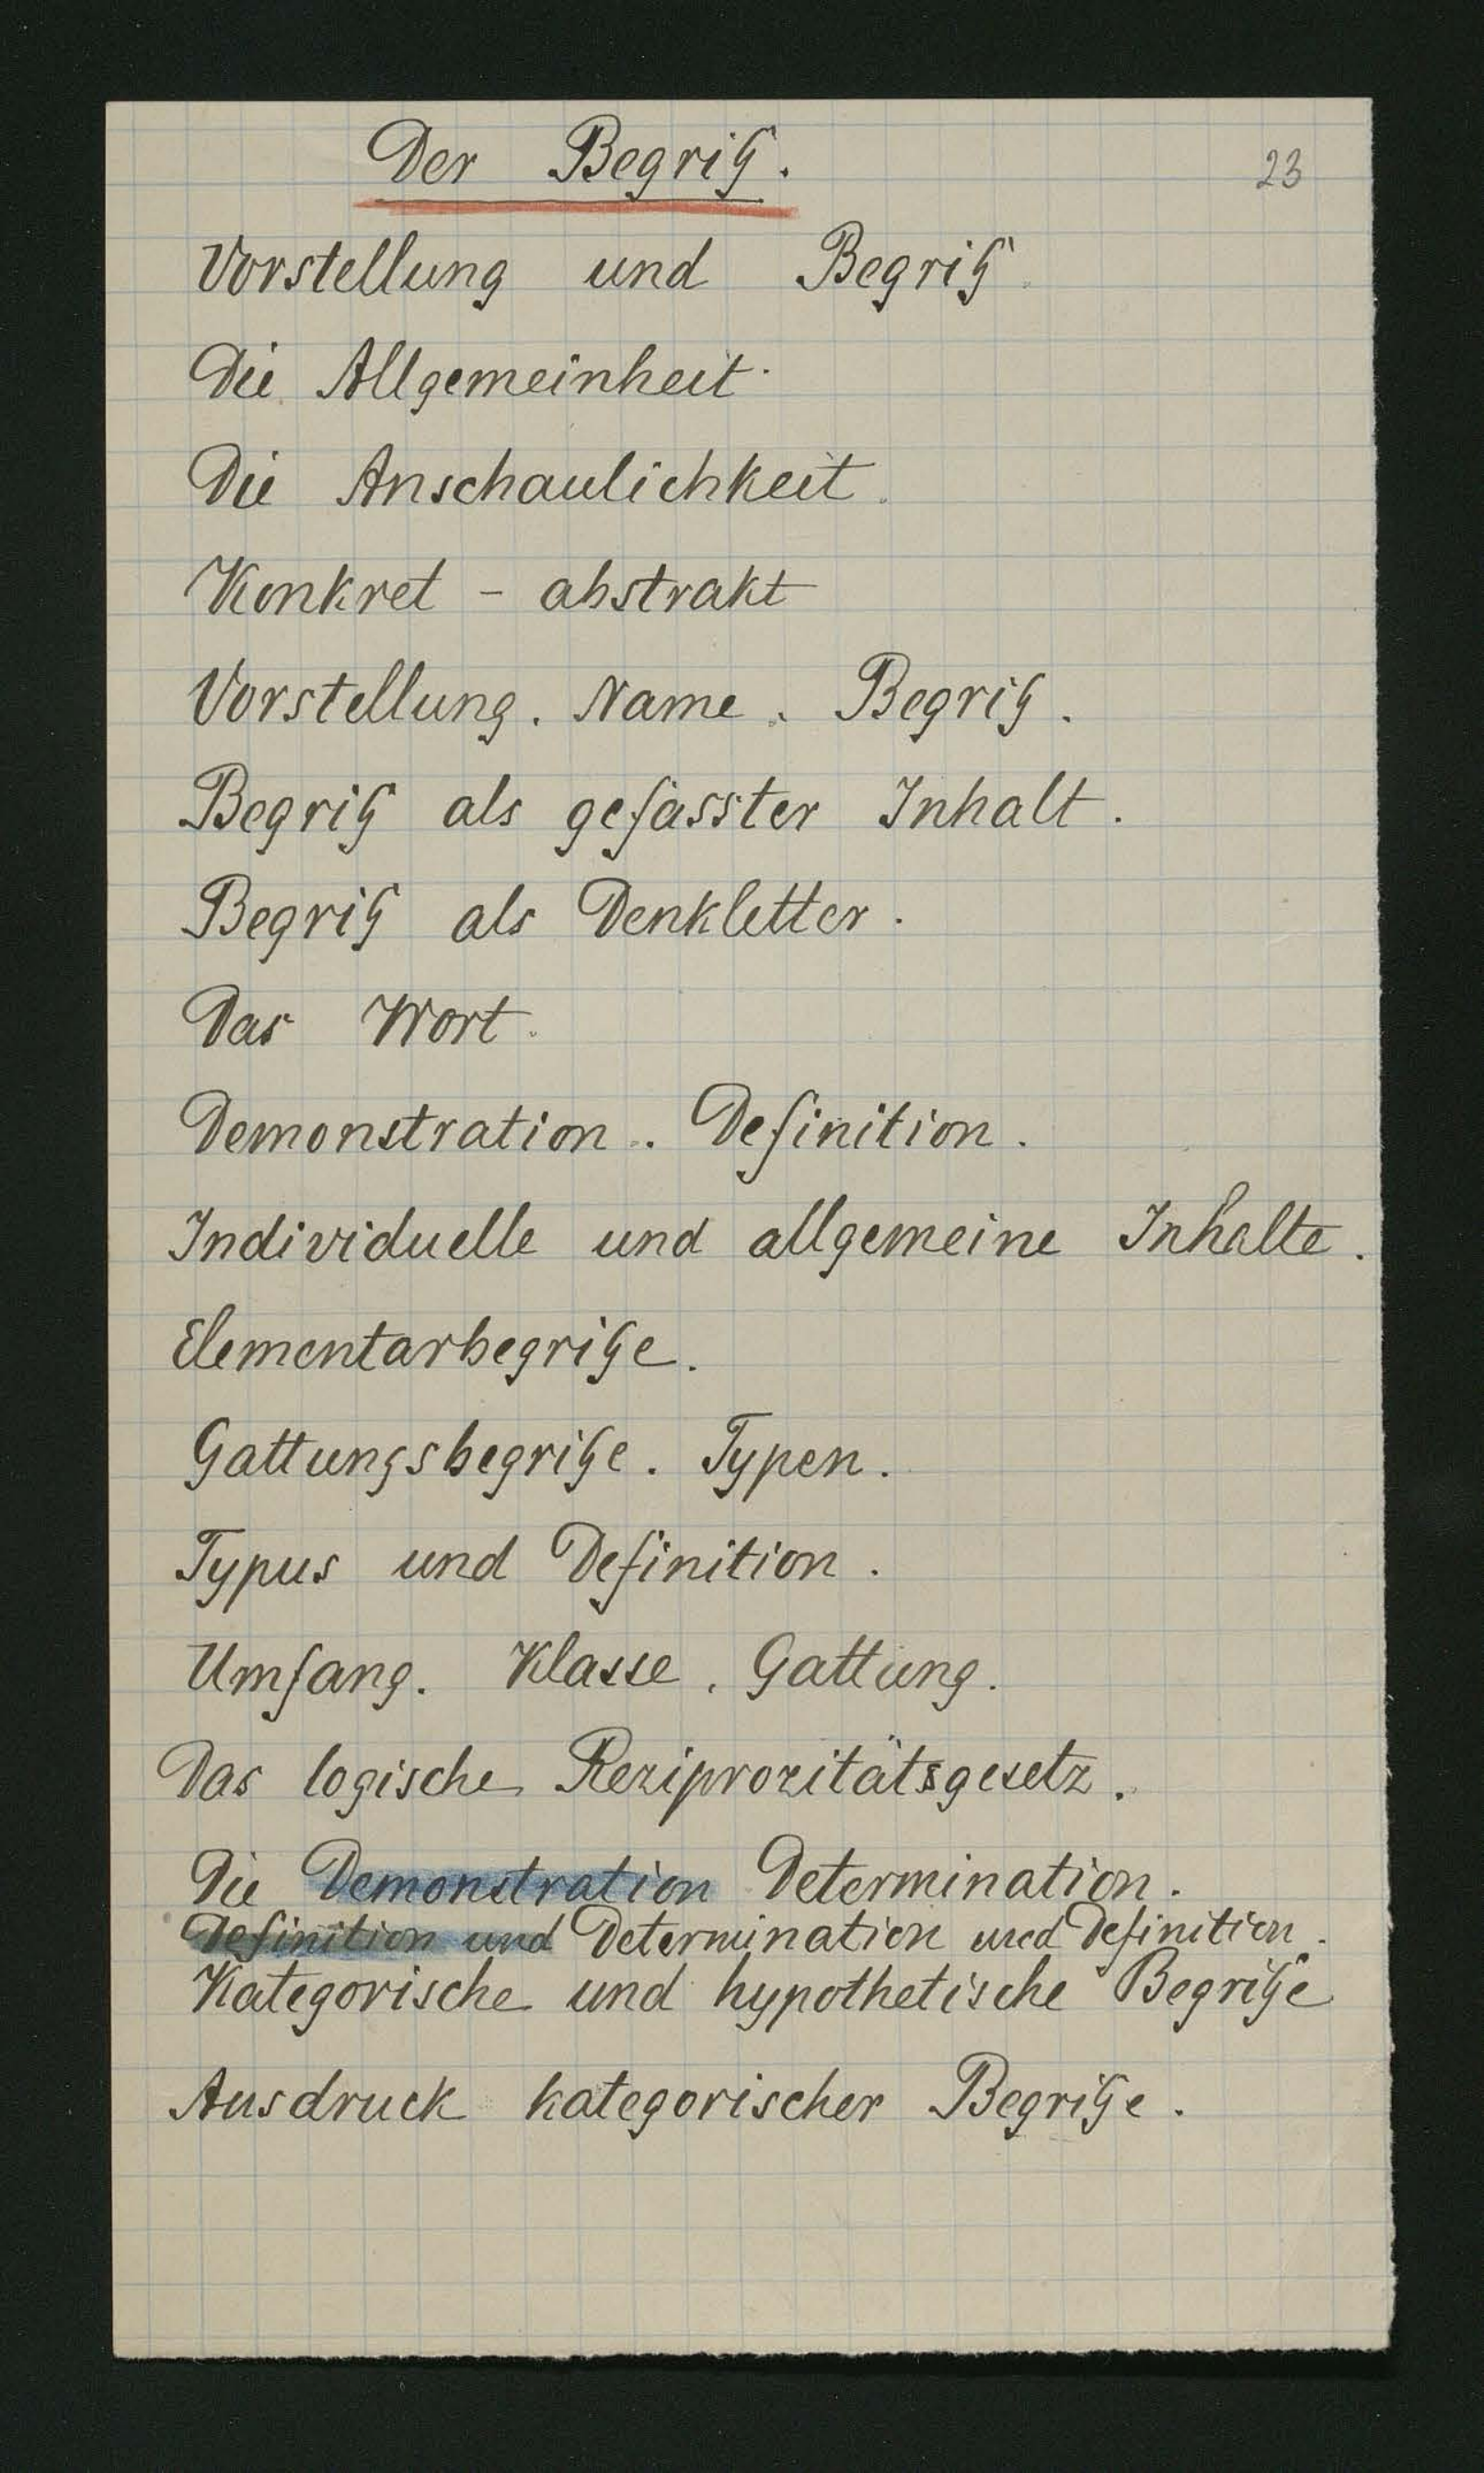 Der Begriff.
23
Vorstellung und Begriff.
Die Allgemeinheit.
Die Anschaulichkeit.
Konkret - abstrakt
Vorstellung. Name. Begriff.
Begriff als gefasster Inhalt.
Begriff als Denkletter.
Das Wort.
Demonstration. Definition.
Individuelle und allgemeine Inhalte.
Elementarbegriffe.
Gattungsbegriffe. Typen.
Typus und Definition.
Umfang. Klasse. Gattung.
Das logische Reziprozitätsgesetz.
Die Demonstration Determination.
Definition und Determination und Definition.
Kategorische und hypothetische Begriffe
Ausdruck kategorischer Begriffe.